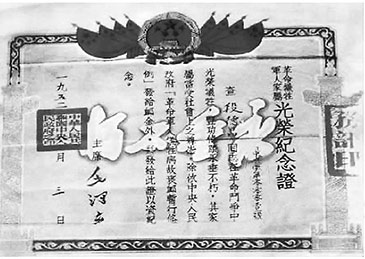 革命犧牲
軍人家屬
光榮紀念證
查段德昌同志在革命鬥爭中
光榮犧牲,豐功偉績永垂不朽,其家
屬當受社會上之尊崇。除依中央人民
政府「革命軍人犧牲病故褒卹暫行條
例」發給卹金外,並發給此證以資記
念。
主席 毛澤東
一九五二 月 三 日
務部印